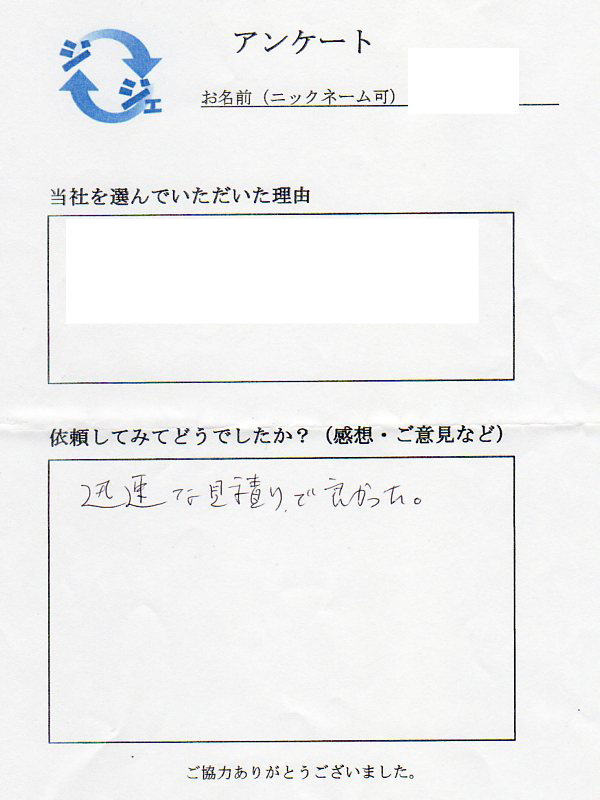 アンケート
ジジェ
お名前（ニックネーム可）
当社を選んでいただいた理由
依頼してみてどうでしたか？（感想・ご意見など）
迅速な見積りで良かった。
ご協力ありがとうございました。